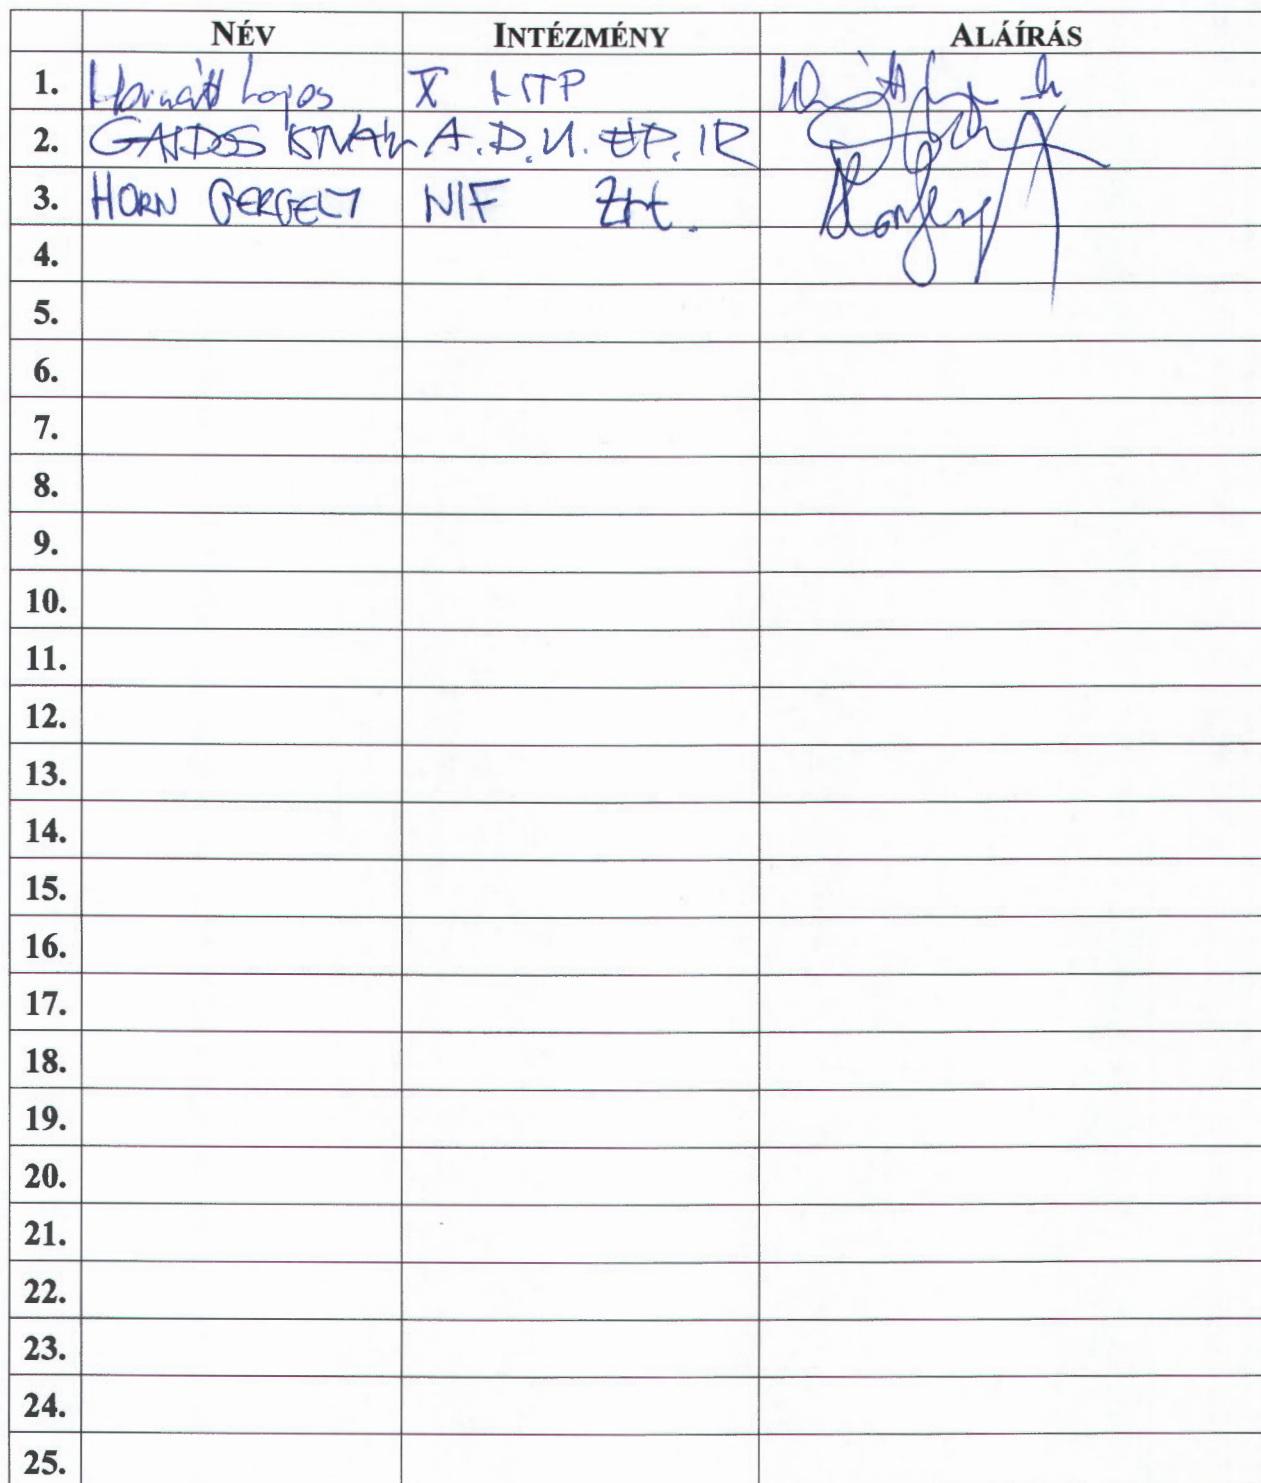 NÉV INTÉZMÉNY ALÁÍRÁS
1. Horváth Lajos X
2. A.D.U. ÉP. IR
3. HORN GERGELY NIF Zrt.
4.
5.
6.
7.
8.
9.
10.
11.
12.
13.
14.
15.
16.
17.
18.
19.
20.
21.
22.
23.
24.
25.